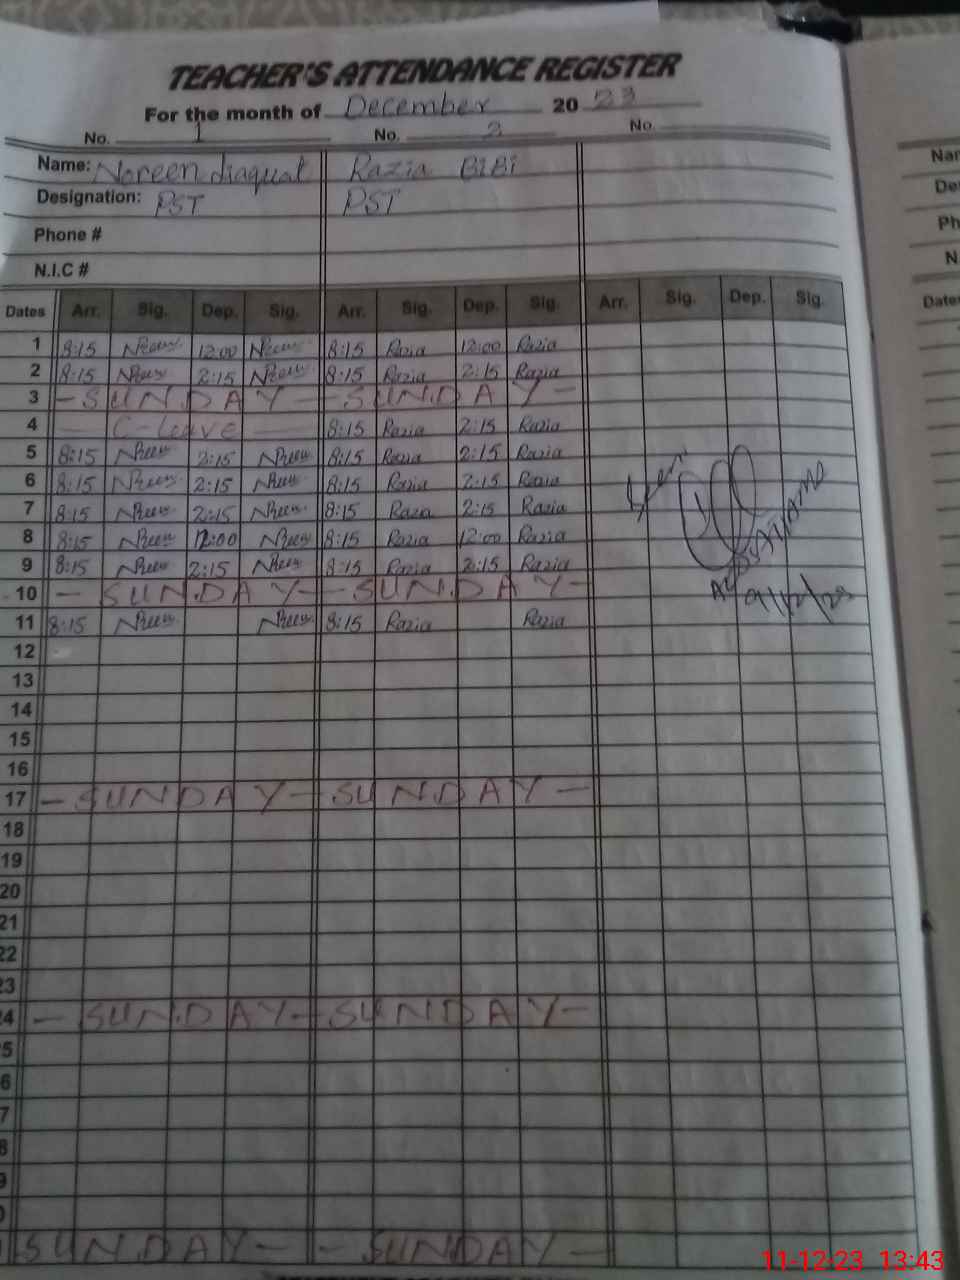 TEACHER'S ATTENDANCE REGISTER
For the month of December 20 23
No. 1 No. 2 No.
Name: Noreen Liaquat Razia BiBi
Designation: PST PST
Phone #
N.I.C #
Dates Arr. Sig. Dep. Sig. Arr. Sig. Dep. Sig. Arr. Sig. Dep. Sig.
1 8:15 12:00 8:15 Razia 12:00 Razia
2 8:15 2:15 8:15 Razia 2:15 Razia
3 - SUNDAY - - SUNDAY -
4 C-leave 8:15 Razia 2:15 Razia
5 8:15 2:15 8:15 Razia 2:15 Razia
6 8:15 2:15 8:15 Razia 2:15 Razia
7 8:15 2:15 8:15 Razia 2:15 Razia
8 8:15 12:00 8:15 Razia 12:00 Razia
9 8:15 2:15 8:15 Razia 2:15 Razia
10 - SUNDAY - - SUNDAY -
9/12/23
11 8:15 8:15 Razia Razia
12
13
14
15
16
17 - SUNDAY - SUNDAY -
18
19
20
21
22
23
24 - SUNDAY - - SUNDAY -
5
6
7
8
9
0
SUNDAY - - SUNDAY -
Nar
De
Ph
N.
Dates
11-12-23 13:43